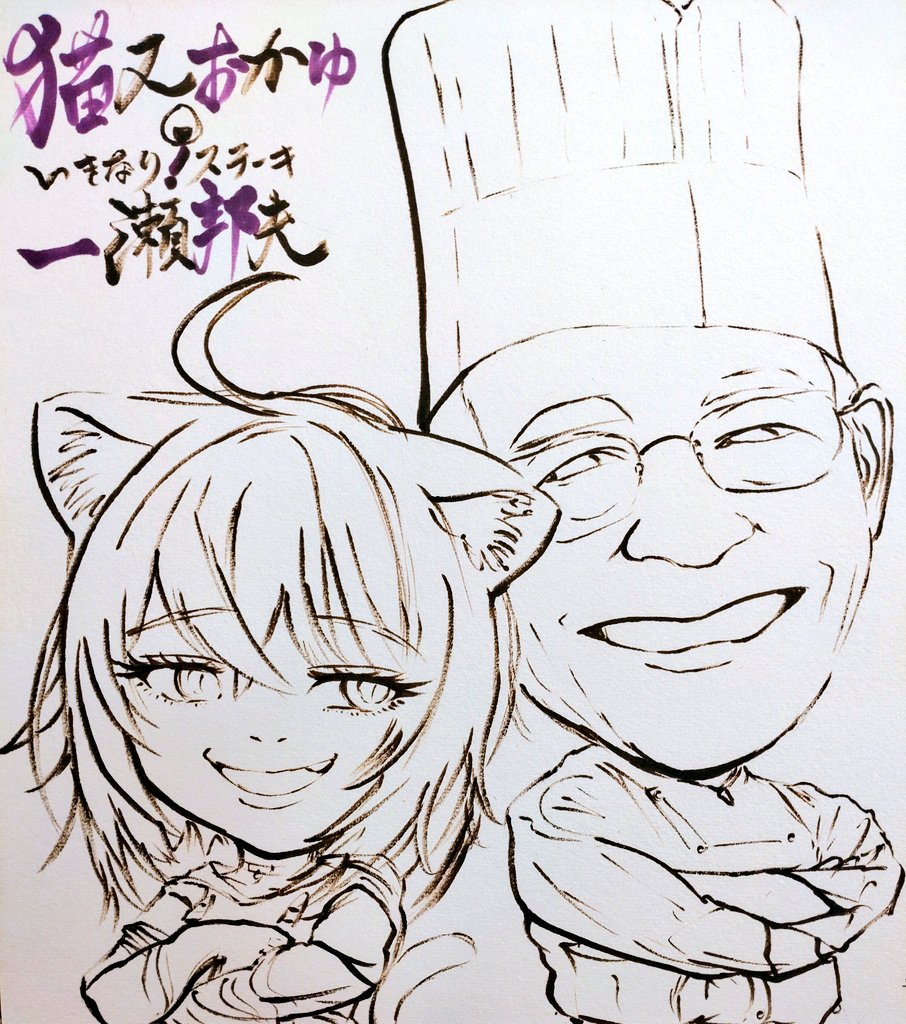 猫又おかゆ
いきなり!ステーキ
一瀬邦夫